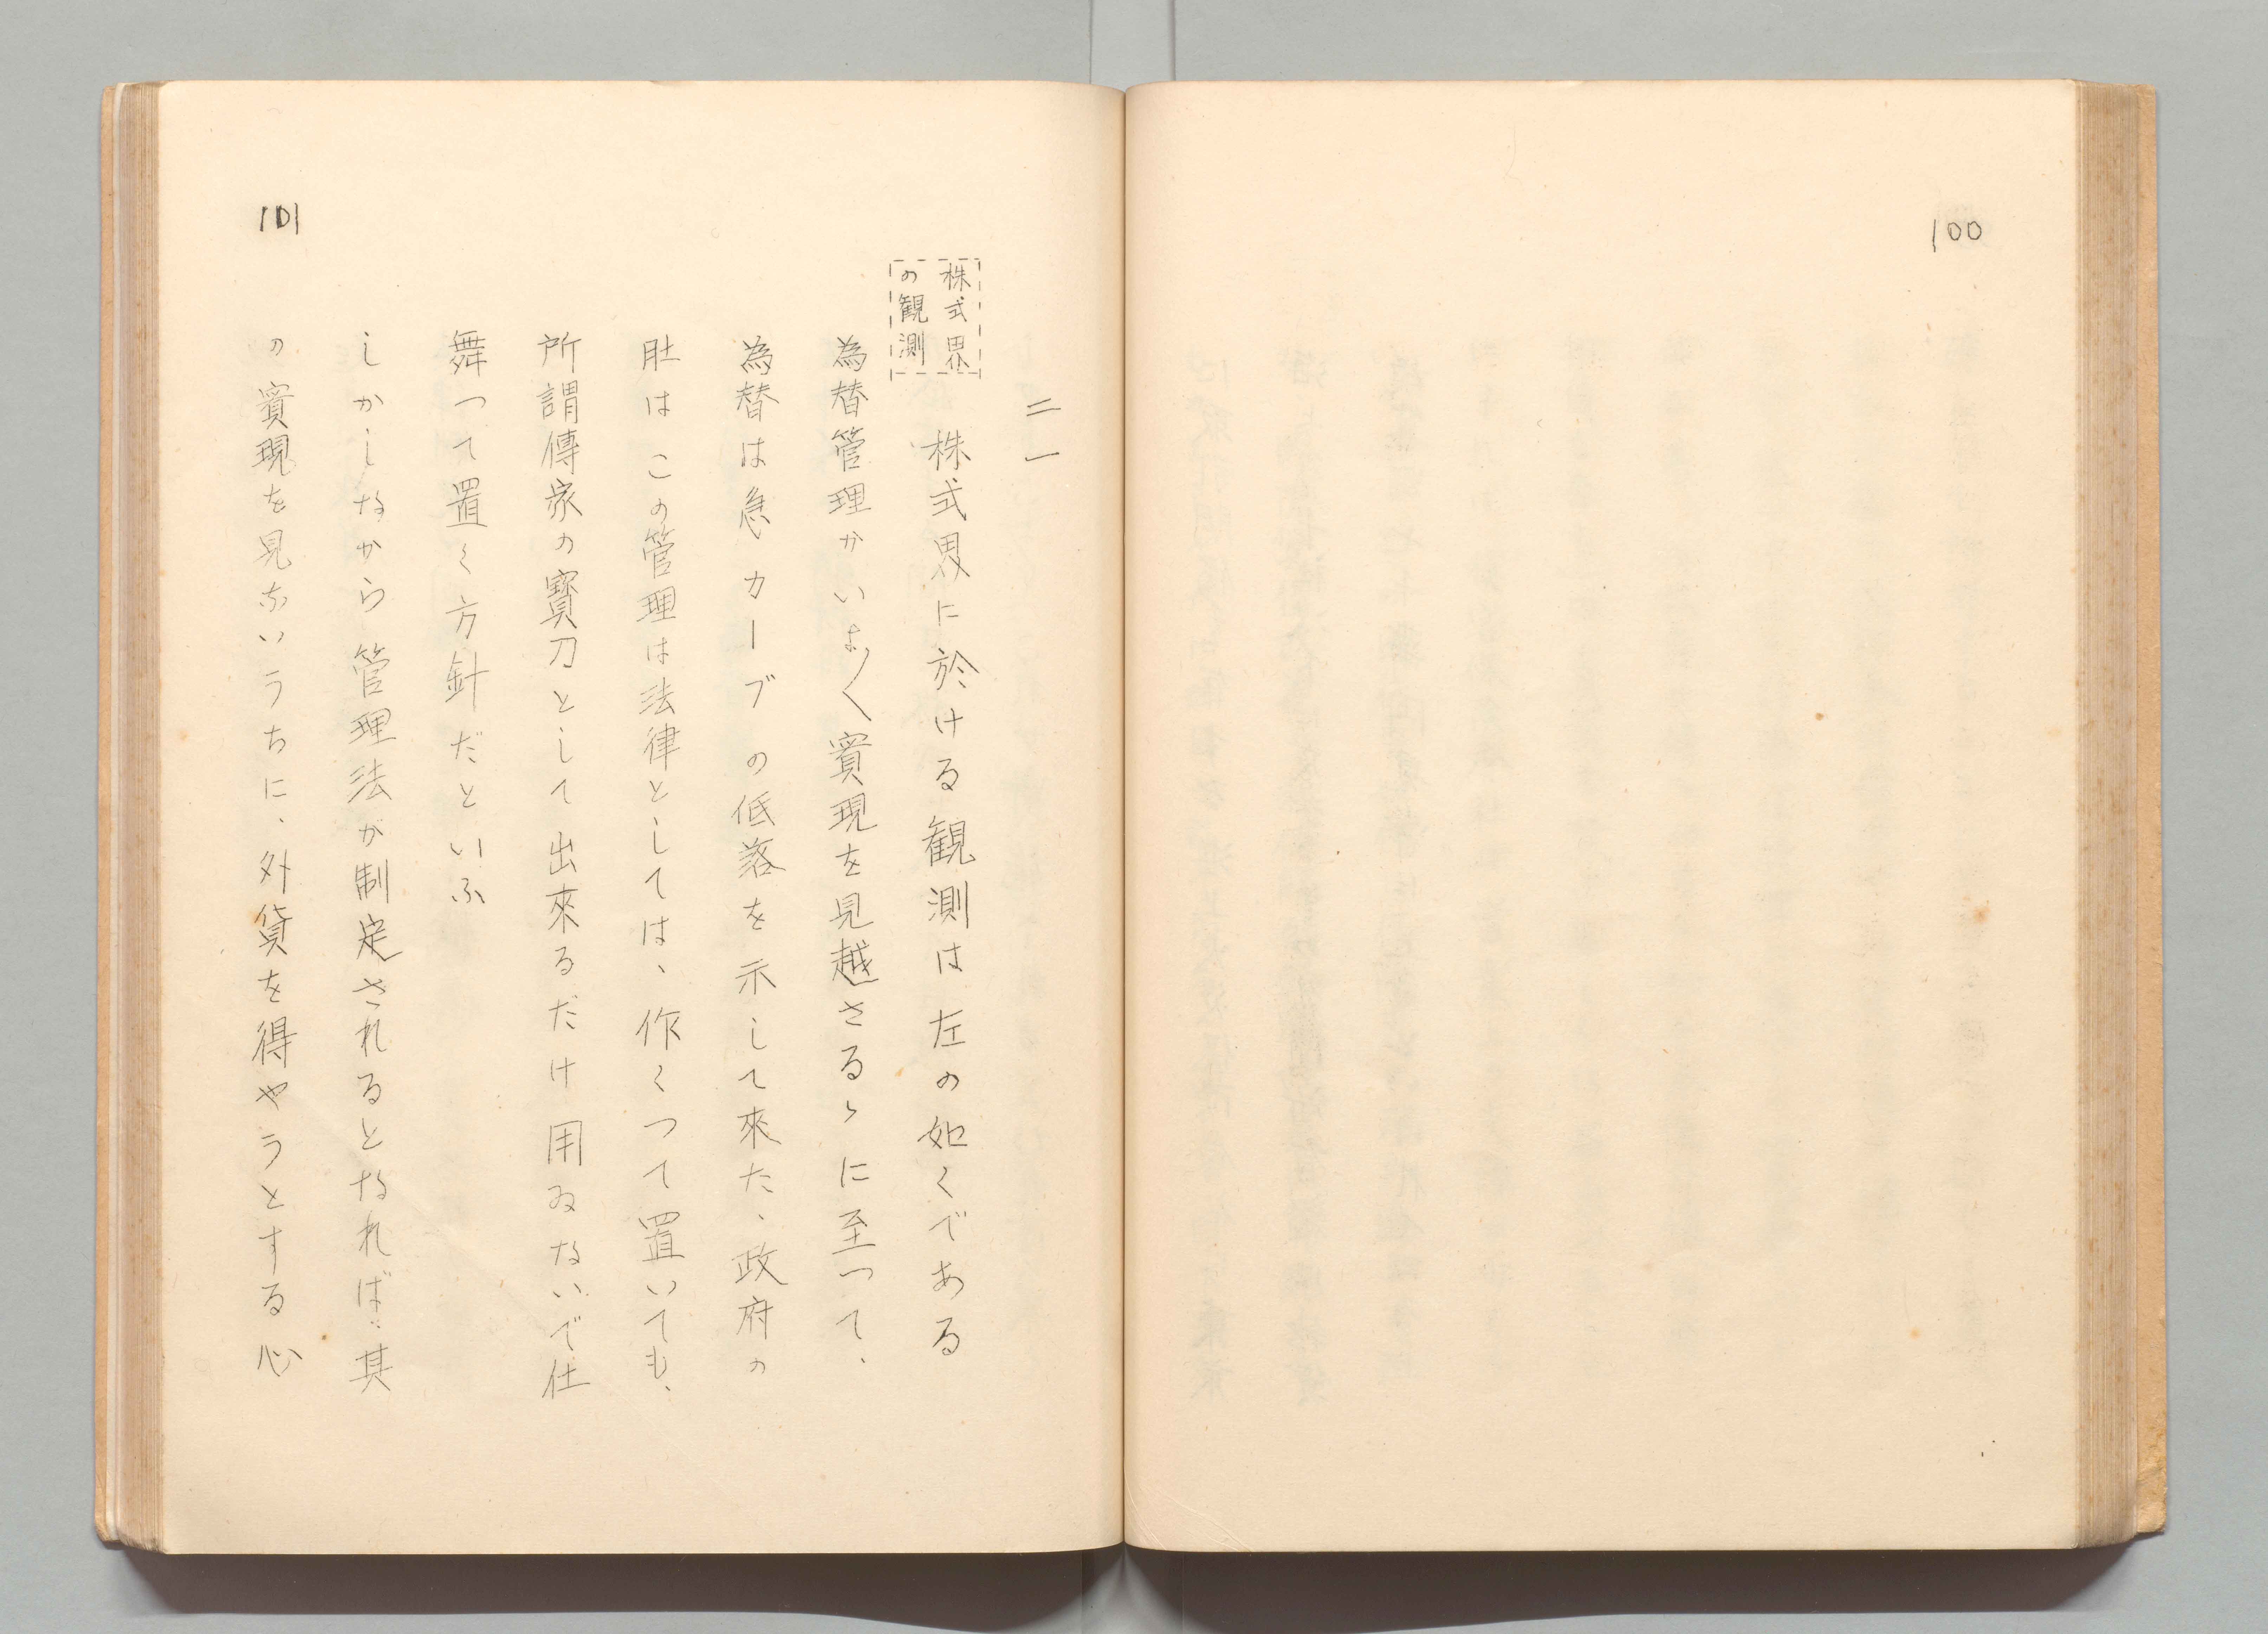 100
二一
株式界
の観測
株式界に於ける観測は左の如くである
為替管理かいよ〱實現を見越さるゝに至つて、
為替は急カーブの低落を示して来た、政府の
肚はこの管理は法律としては、作くつて置いても、
所謂傳家の寳刀として出來るだけ用ゐないで仕
舞つて置く方針だといふ
しかしなから管理法が制定されるとなれば、其
の實現を見ないうちに、外貨を得やうとする心
101